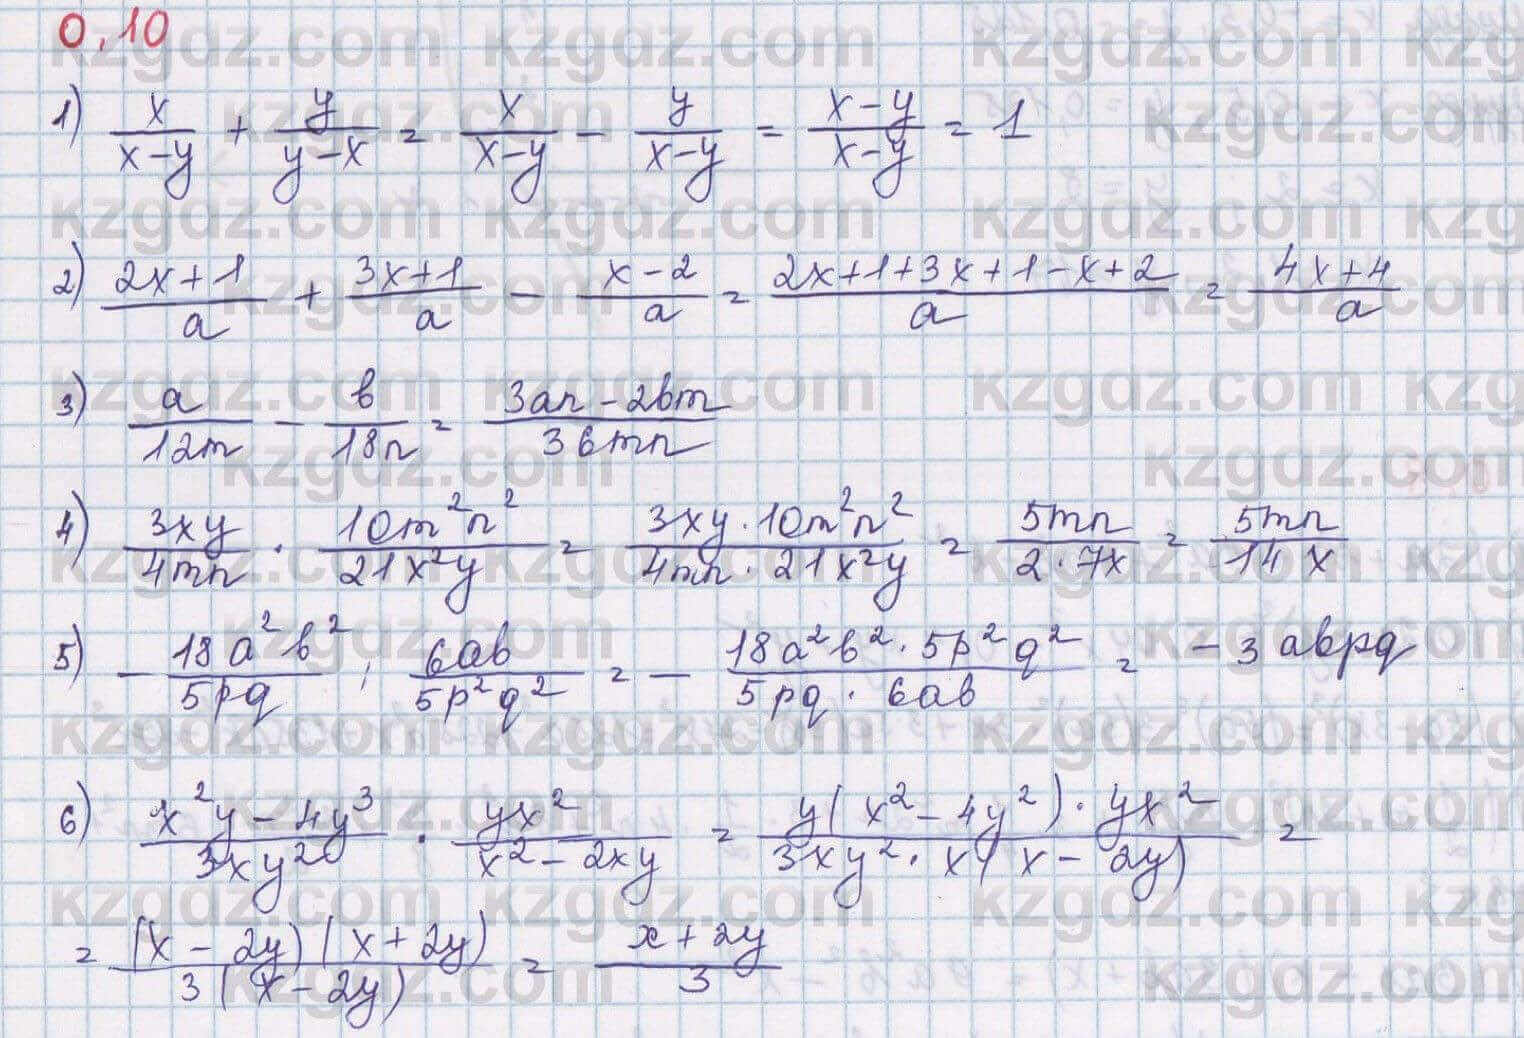 0.10
1) x/(x-y) + y/(y-x) = x/(x-y) - y/(x-y) = (x-y)/(x-y) = 1
2) (2x+1)/a + (3x+1)/a - (x-2)/a = (2x+1+3x+1-x+2)/a = (4x+4)/a
3) a/12m - b/18n = (3an-2bm)/36mn
4) 3xy/4mn · 10m²n²/21x²y = (3xy·10m²n²)/(4mn·21x²y) = 5mn/(2·7x) = 5mn/14x
5) - 18a²b²/5pq : 6ab/5p²q² = - (18a²b²·5p²q²)/(5pq·6ab) = -3abpq
6) (x²y-4y³)/3xy² · yx²/(x²-2xy) = (y(x²-4y²)·yx²)/(3xy²·x(x-2y)) =
= ((x-2y)(x+2y))/(3(x-2y)) = (x+2y)/3
kzgdz.com